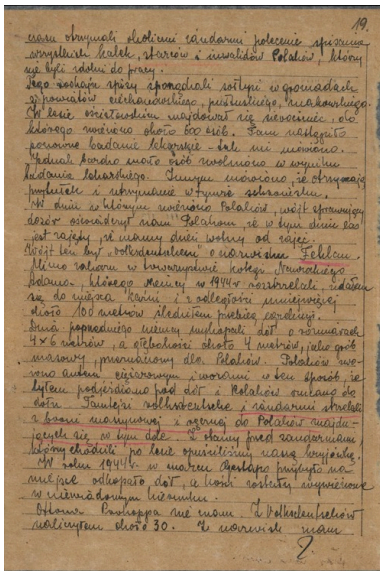 19.
czasu otrzymali okoliczni żandarmi polecenie spisania
wszystkich kalek, starców i inwalidów Polaków, którzy
nie byli zdolni do pracy.
Tego rodzaju spisy sporządzali sołtysi w gromadach
z powiatów ciechanowskiego, pułtuskiego, makowskiego.
W lesie ościsłowskim znajdował się, do
którego zwieziono około 600 osób. Tam nastąpiło
ponowne badanie lekarskie – tak mi mówiono.
Jednak bardzo mało osób zwolniono w wyniku
badania lekarskiego. Innym mówiono, że otrzymają
przytułek i utrzymanie w schronisku.
W dniu w którym zwieziono Polaków, wójt sprawujący
dozór oświadczył nam Polakom, że w tym dniu las
jest zajęty, że mamy dzień wolny od zajęć.
Wójt ten był "volksdeutschem" o nazwisku Fehlau.
Mimo zakazu w towarzystwie kolegi
Adama, którego Niemcy w 1944 r rozstrzelali, udałem
się do miejsca kaźni i z odległości mniejszej
około 100 metrów śledziłem przebieg egzekucji.
Dnia poprzedniego niemcy wykopali dół o rozmiarach
4 x 6 metrów, a głębokości około 4 metrów, jako grób
masowy, przeznaczony dla Polaków. Polaków zwo-
żono autem ciężarowym i wozami w ten sposób, że
tyłem podjeżdżano pod dół i Polaków do
dołu. Tamtejsi volksdeutsche i żandarmi strzelali
z broni maszynowej i ręcznej do Polaków znajdu-
jących się w tym dole. Z obawy przed żandarmami,
którzy chodzili po lesie opuściliśmy naszą kryjówkę.
W roku 1944 r. w marcu Gestapo przybyło na
miejsce odkopało dół, a kości zostały wywiezione
w niewiadomym kierunku.
nie znam. Z Volksdeutschów
naliczyłem około 30. Z nazwisk znam